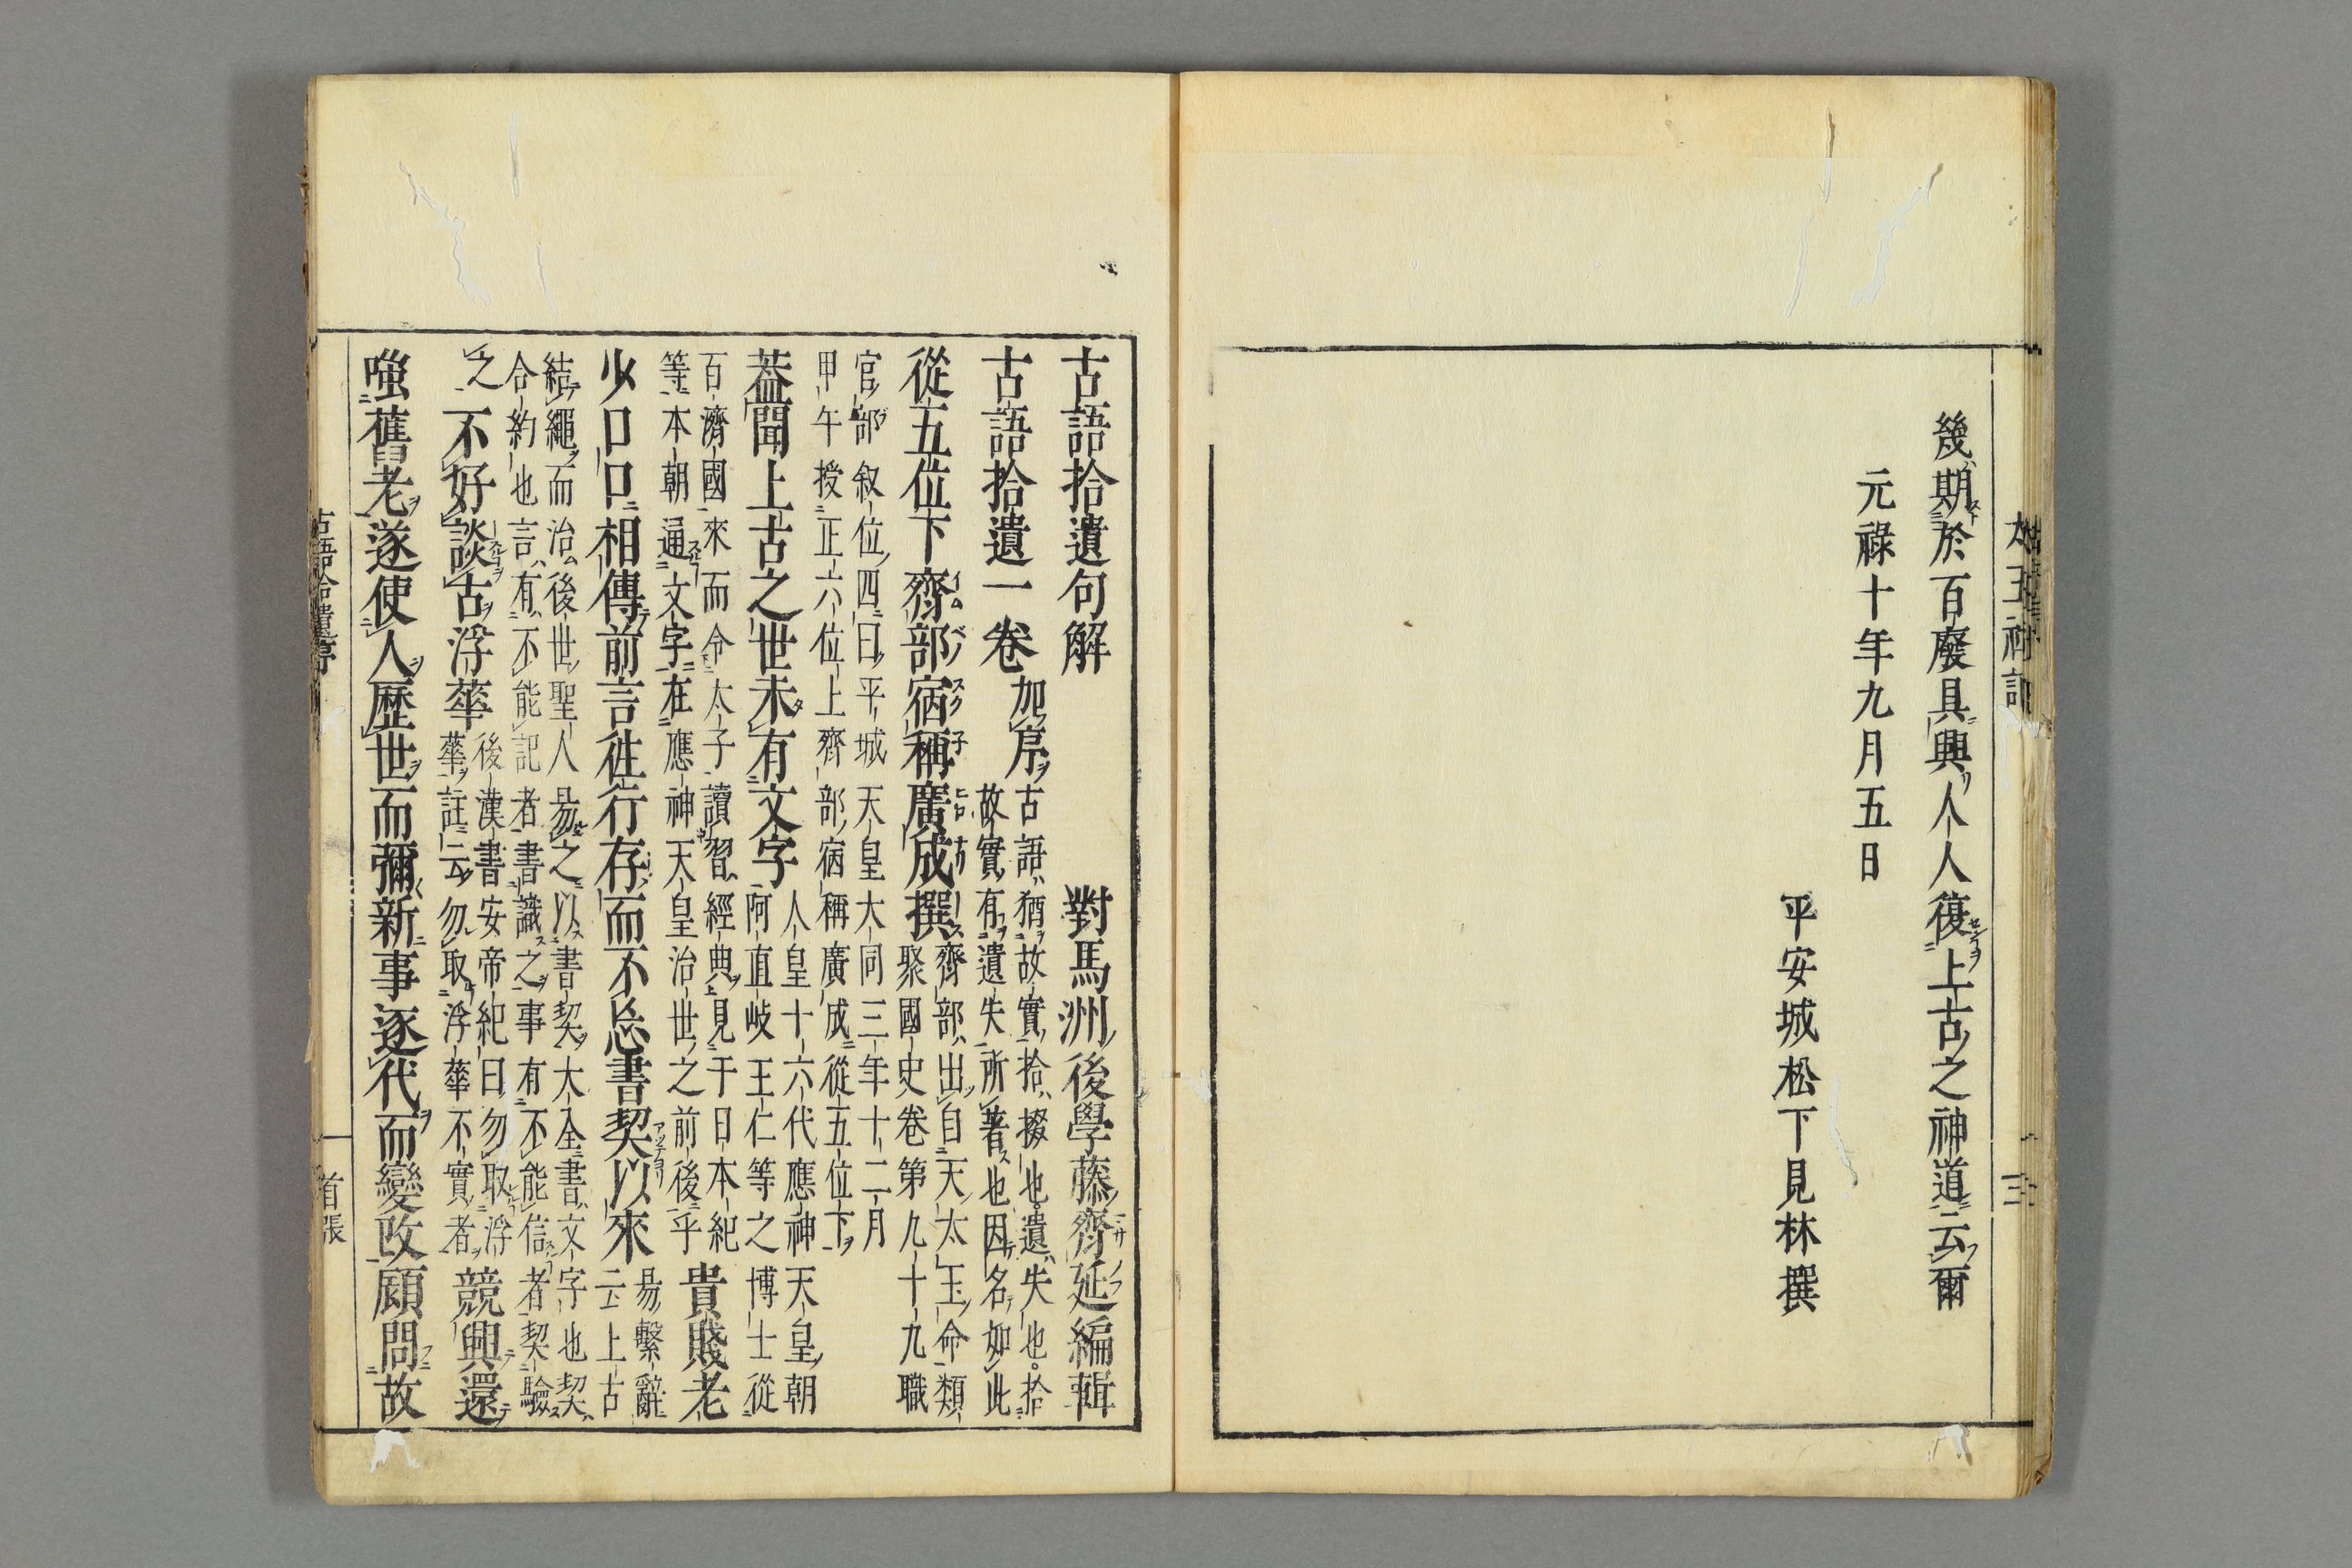 幾期於百廢具興人人復上古之神道云爾
元祿十年九月五日
平安城松下見林撰
古語拾遺句解
對馬洲後學藤齊延編輯
古語拾遺一卷加序
古語猶故實拾掇也遺失也。拾
故實有遺失所著也因名如此
從五位下齊部宿稱廣成撰
齊部出自天太玉命類
聚國史卷第九十九職
官部叙位四曰平城天皇大同三年十二月
甲午授正六位上齊部宿稱廣成從五位下
葢聞上古之世未有文字
人皇十六代應神天皇朝
阿直岐王仁等之博士從
百濟國來而令太子讀習經典見于日本紀
等本朝通文字在應神天皇治世之前後乎
貴賤老
少口口相傳前言徃行存而不忘書契以來
易繫辭
云上古
結繩而治後世聖人易之以書契大全書文字也契
合約也言有不能記者書識之事有不能信者契驗
之
不好談古浮華
後漢書安帝紀曰勿取浮
華註云勿取浮華不實者
競興還
嗤舊老遂使人歷世而彌新事逐代而變攺顧問故
首張